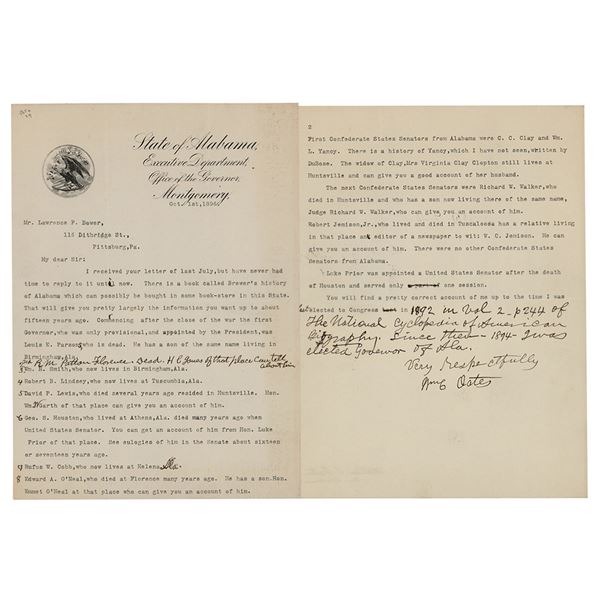 State of Alabama,
Executive Department
Office of the Governor,
Montgomery,
Oct. 1st, 1896.
Mr. Lawrence P. Bower,
116 Dithridge St.,
Pittsburg, Pa.
My dear Sir:
I received your letter of last July, but have never had
time to reply to it until now. There is a book called Brewer's history
of Alabama which can possibly be bought in some book-store in this State.
That will give you pretty largely the information you want up to about
fifteen years ago. Commencing after the close of the war the first
Governor, who was only provisional, and appointed by the President, was
Louis E. Parsons, who is dead. He has a son of the same name living in
Birmingham, Ala.
R M Patton Florence. Dead. H C Jones of that place can tell
about him
3 Wm. H. Smith, who now lives in Birmingham, Ala.
4 Robert B. Lindsey, who now lives at Tuscumbia, Ala.
5 David P. Lewis, who died several years ago resided in Huntsville. Hon.
Wm of that place can give you an account of him.
6 Geo. S. Houston, who lived at Athens, Ala. died many years ago when
United States Senator. You can get an account of him from Hon. Luke
Prior of that place. See eulogies of him in the Senate about sixteen
or seventeen years ago.
7 Rufus W. Cobb, who now lives at Helena, Ala.
8 Edward A. O'Neal, who died at Florence many years ago. He has a son Hon.
Emmet O'Neal at that place who can give you an account of him.
2
First Confederate States Senators from Alabama were C. C. Clay and Wm.
L. Yancy. There is a history of Yancy, which I have not seen, written by
DuBose. The widow of Clay, Mrs Virginia Clay Clopton still lives at
Huntsville and can give you a good account of her husband.
The next Confederate States Senators were Richard W. Walker, who
died in Huntsville and who has a son now living there of the same name,
Judge Richard W. Walker, who can give you an account of him.
Robert Jemison, Jr., who lived and died in Tuscaloosa has a relative living
in that place and editor of a newspaper to wit: W. C. Jemison. He can
give you an account of him. There were no other Confederate States
Senators from Alabama.
Luke Prior was appointed a United States Senator after the death
of Houston and served only a part of one session.
You will find a pretty correct account of me up to the time I was
elected to Congress in 1892 in Vol 2. p 244 of
The National Cyclopedia of American
Biography. Since then - 1894 - I was
elected Governor of Ala.
Very respectfully
Wm C Oates